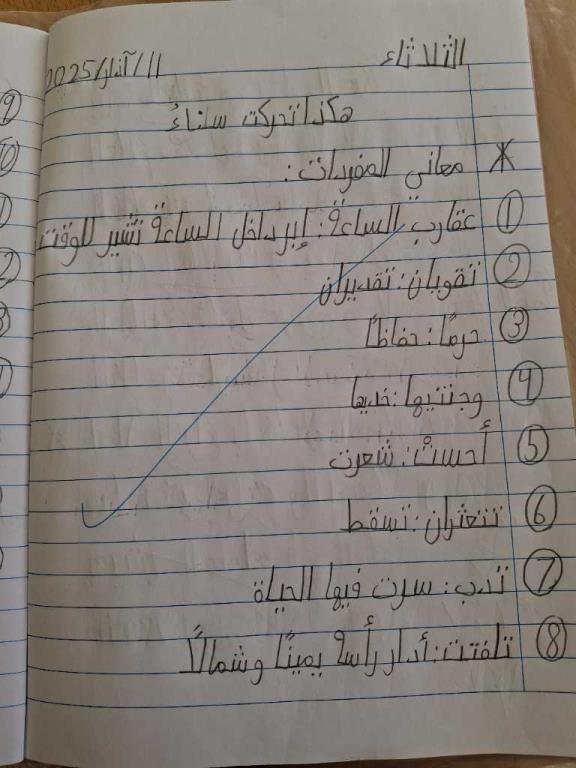 الثلاثاء 11/آذار/2025
هكذا تحركت سناءُ
* معاني المفردات:
① عقارب الساعة: إبر داخل الساعة تشير للوقت
② تقويان: تقديران
③ حرصًا: حفاظًا
④ وجنتيها: خديها
⑤ أحستْ: شعرت
⑥ تتعثران: تسقط
⑦ تدب: سرت فيها الحياة
⑧ تلفتت: أدار رأسه يمينًا وشمالًا